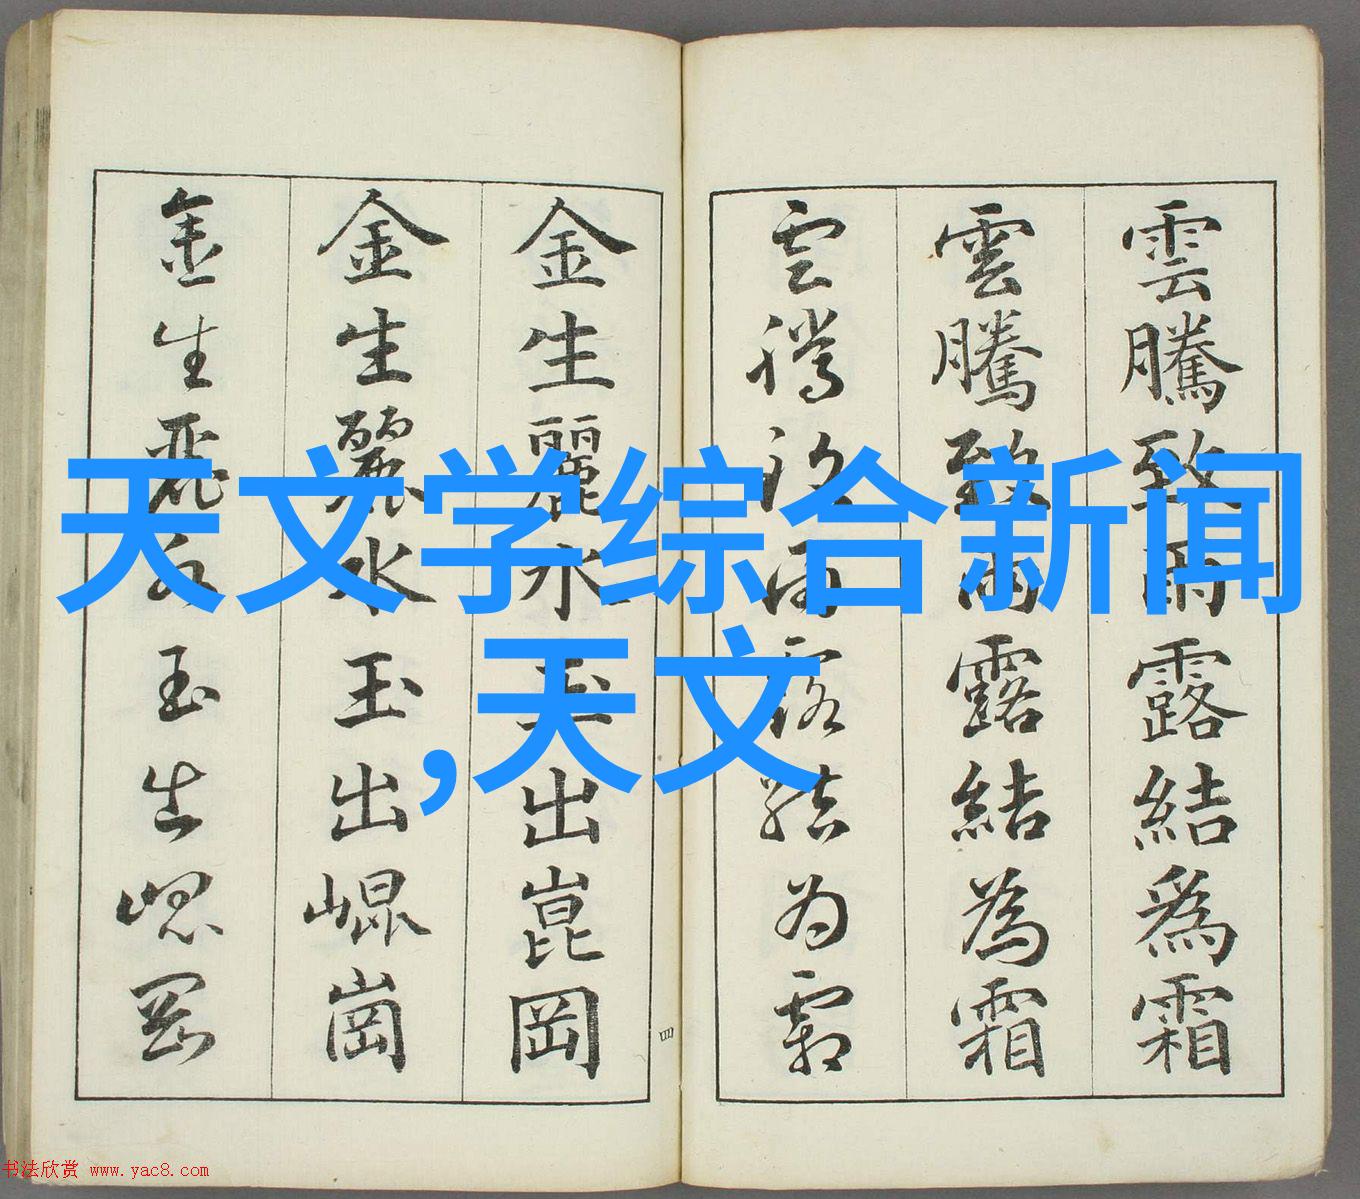 天文学综合新闻
,天文
雲騰致雨露結爲霜
雲騰致雨露結為霜
雲騰致雨露結为霜
金生麗水玉出崑岡
金生麗水玉出崐崗
金生麗水玉出崐岡
四
书法欣赏 www.yac8.com